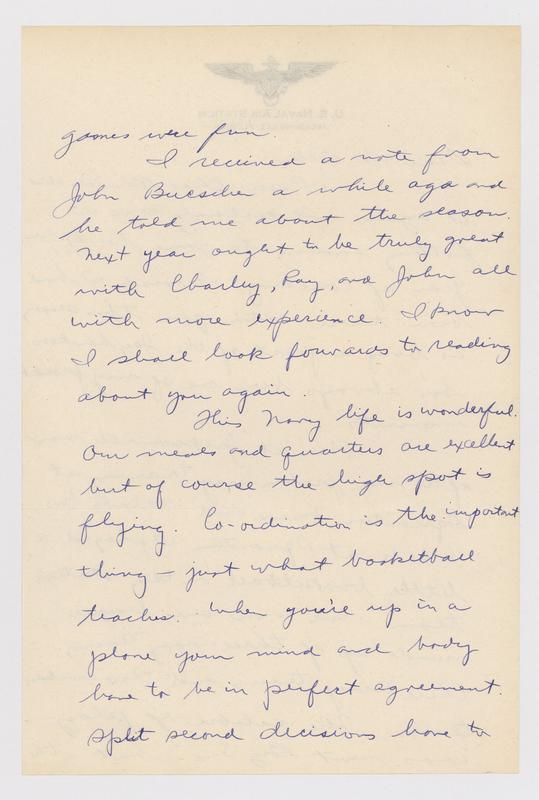 games were fun.
I received a note from
John Buescher a while ago and
he told me about the season.
Next year ought to be truly great
with Charley, Ray, and John all
with more experience. I know
I shall look forwards to reading
about you again.
This Navy life is wonderful.
Our meals and quarters are excellent
but of course the high spot is
flying. Co-ordination is the important
thing — just what basketball
teaches. When you're up in a
plane your mind and body
have to be in perfect agreement.
Split second decisions have to